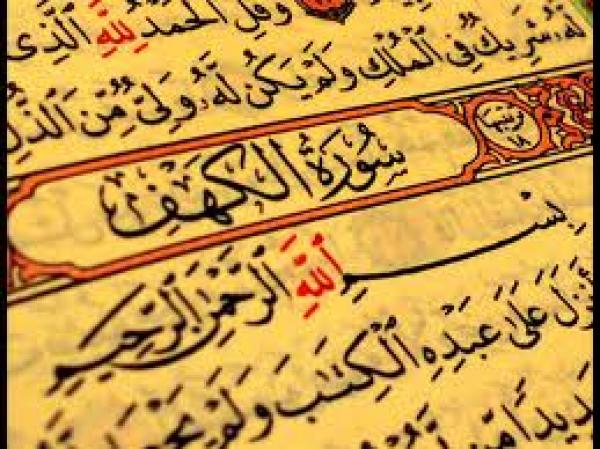 وَقُلِ الْحَمْدُ لِلَّهِ الَّذِى
لَّهُۥ شَرِيكٌ فِى الْمُلْكِ وَلَمْ يَكُن لَّهُۥ وَلِىٌّ مِّنَ الذُّلِّ
سُورَةُ الْكَهْفِ
بِسْمِ اللَّهِ الرَّحْمَٰنِ الرَّحِيمِ
أَنزَلَ عَلَىٰ عَبْدِهِ الْكِتَٰبَ وَلَمْ يَجْعَل